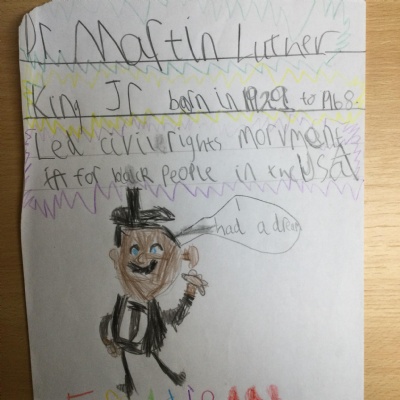 Dr. Martin Luther
King Jr born in 1929 to 1968
Led civil rights morvment
for black people in the USA
I
had a dream